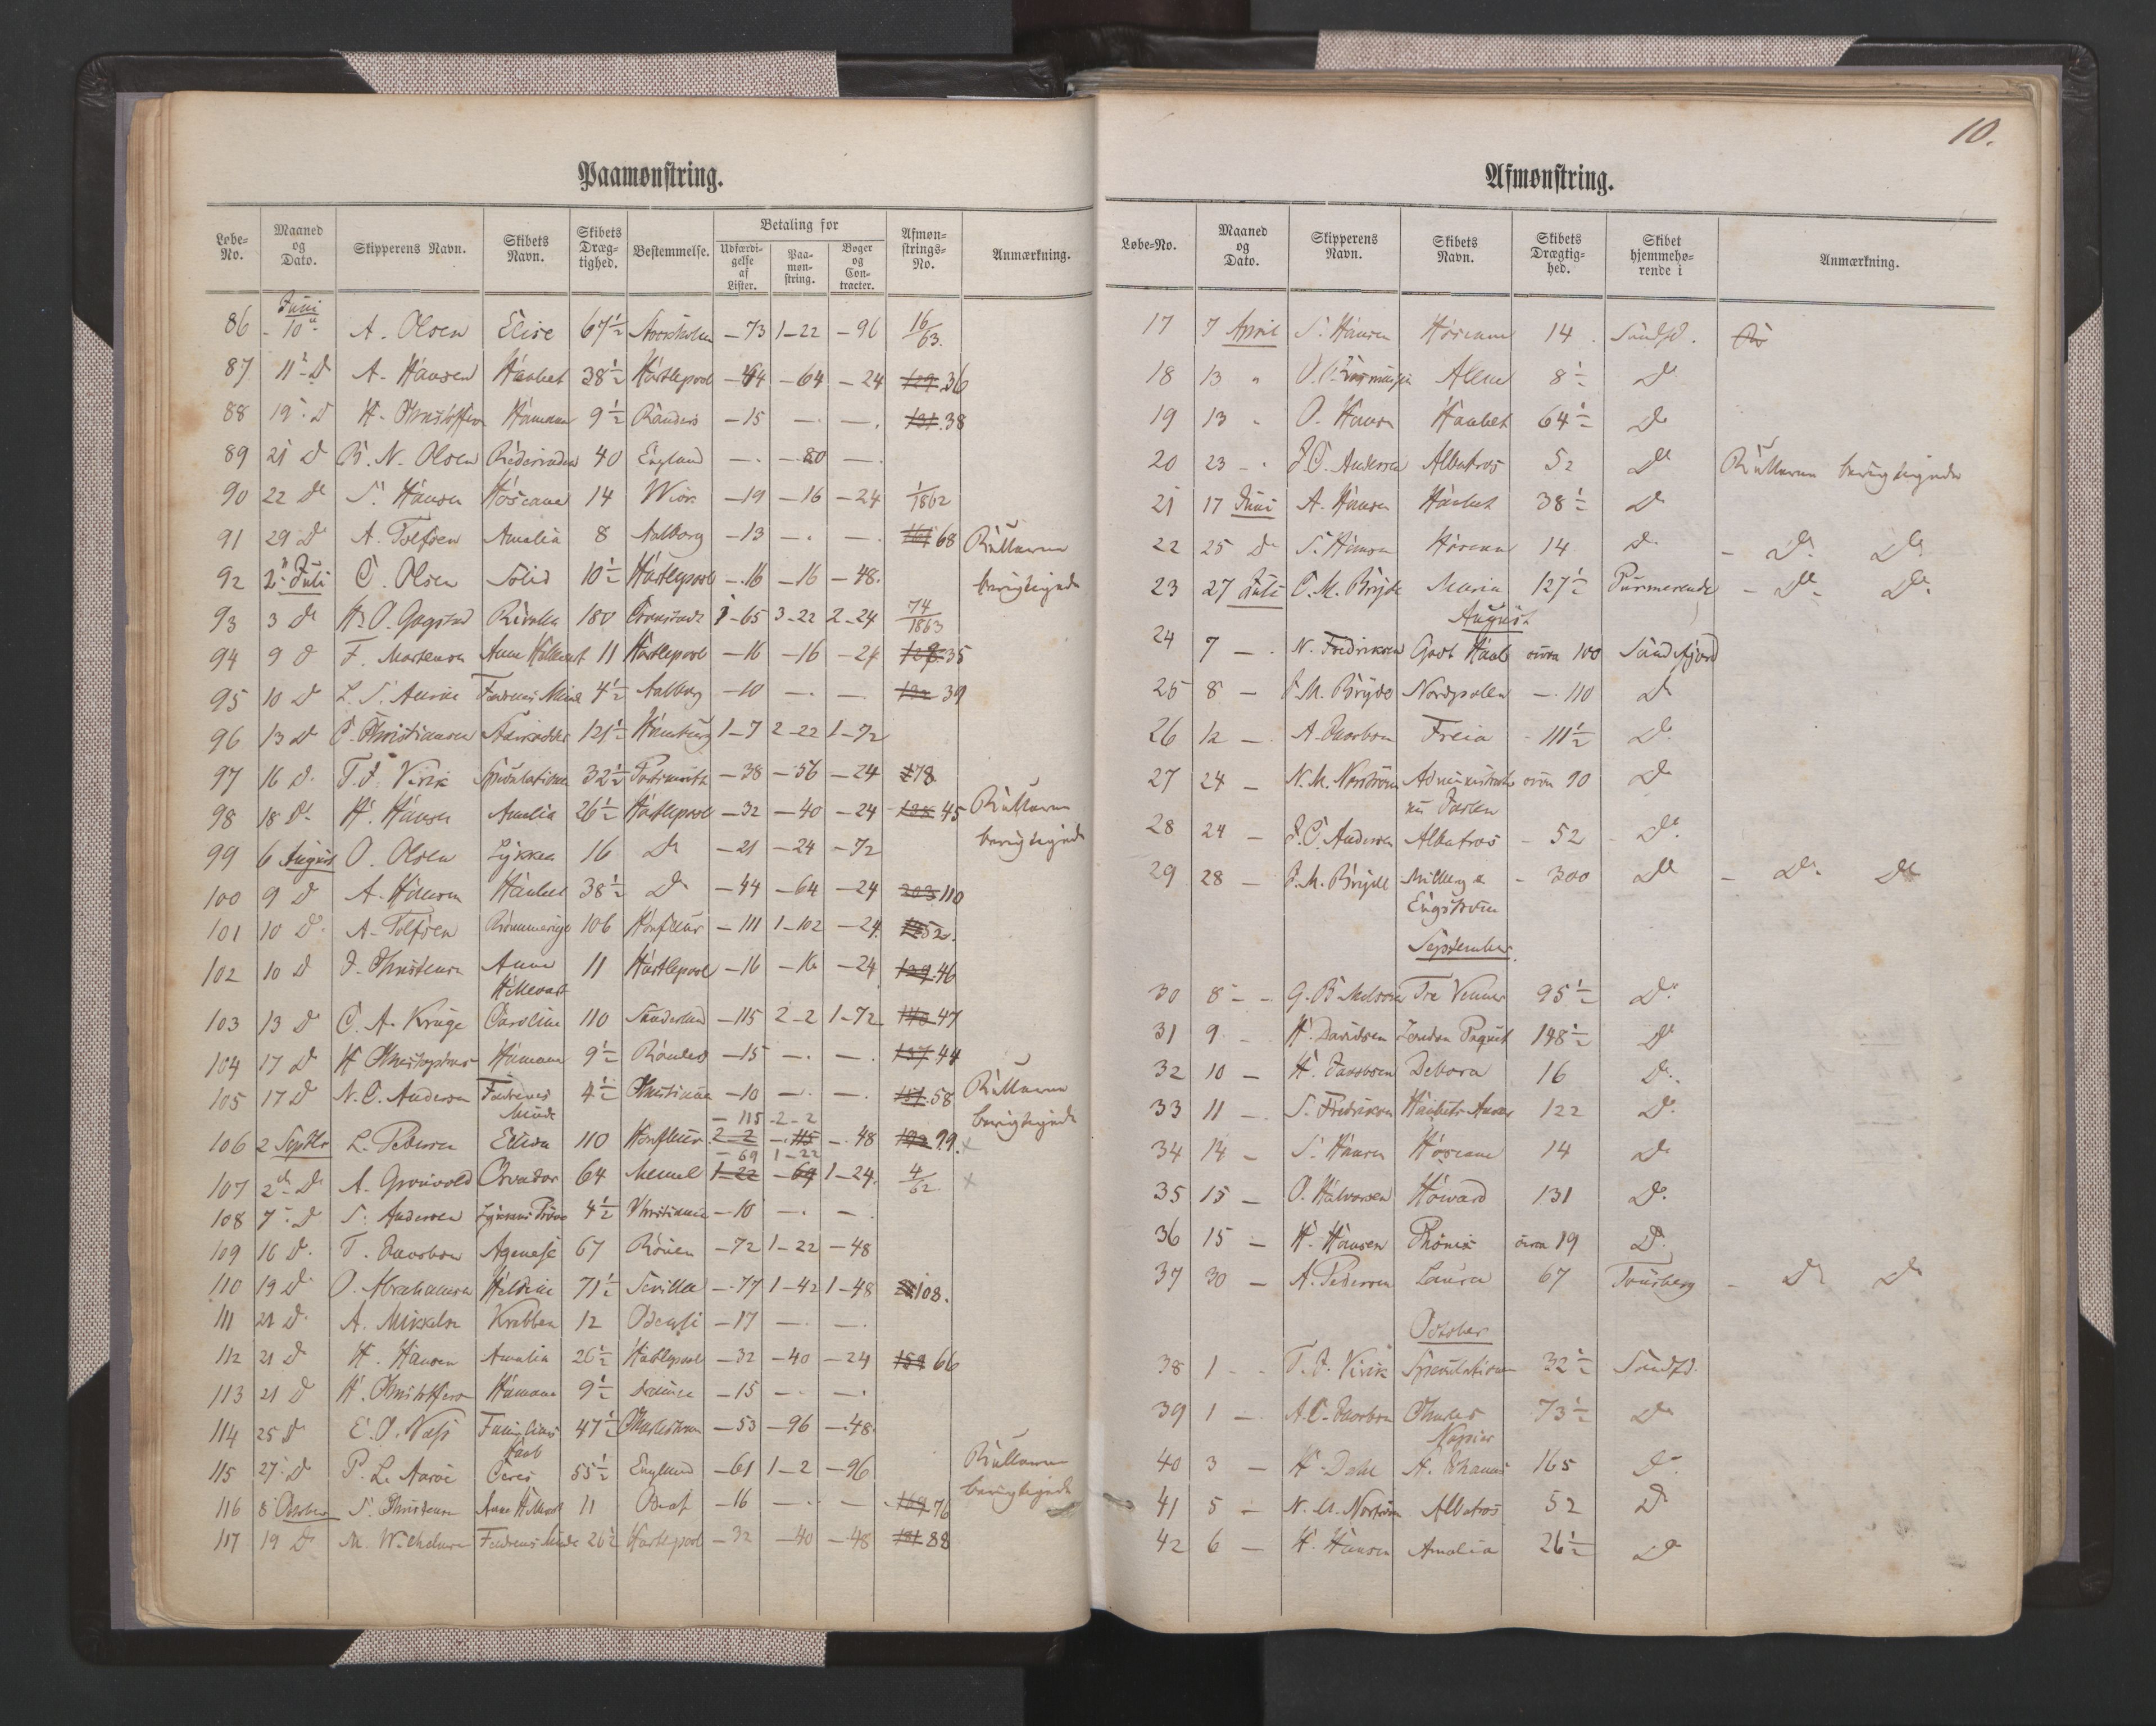 10.
Paamønstring.
Løbe-No. Maaned og Dato. Skipperens Navn. Skibets Navn. Skibets Drægtighed. Bestemmelse. Betaling for Udfærdigelse af Lister. Paamønstring. Bøger og Contracter. Afmønstrings-No. Anmærkning.
Juni
86 - 10 A. Olsen Elise 67½ Stockholm - 73 1 - 22 - 96 16/63.
87 11 D A. Hansen Haabet 38½ Hartlepool - 44 - 64 - 24 129. 36
88 19 D H. Christoffersen 9½ Randers - 15 - - 131. 38
89 21 D B. N. Olsen 40 England - - 80 -
90 22 Do S. Hansen 14 - 19 - 16 - 24 1/1862
91 29 D A. Tolfsen Amalia 8 Aalborg - 13 - - 161 68 Rullerne
92 2 Juli C. Olsen Solid 10½ Hartlepool - 16 - 16 - 48. berigtigede
93 3 Do H. O. Gogstad 180 1 - 65 3 - 22 2 - 24 74/1863
94 9 D F. Mortensen Anna 11 Hartlepool - 16 - 16 - 24 128 35
95 10 D L. S. Fædrenes Minde 4½ Aalborg - 10 - - 132 39
96 13 D C. Christiansen 121½ Hamburg 1 - 7 2 - 22 1 - 72
97 16 D. T. J. Virik Speculation 32½ Portsmouth - 38 - 56 - 24 178
98 18 D H. Hansen Amalia 26½ Hartlepool - 32 - 40 - 24 138 45 Rullerne
99 6 August O. Olsen Lykken 16 Do - 21 - 24 - 72 berigtigede
100 9 D A. Hansen Haabet 38½ D - 44 - 64 - 24 203 110
101 10 D A. Tolfsen 106 Honfleur - 111 1 - 102 - 24 52.
102 10 D J. Christensen Anna 11 Hartlepool - 16 - 16 - 24 139. 46
103 13 D C. A. Kruge Caroline 110 Sunderland - 115 2 - 2 1 - 72 140 47
104 17 D H. Christophersen 9½ Randers - 15 - - 137 44
105 17 D N. C. Andersen Fædrenes Minde 4½ Christiania - 10 - - 151. 58 Rullerne berigtigede
- 115 - 2 - 2
106 2 Septbr L. Pedersen Elisa 110 Honfleur 2 - 2 - 115 - 48 192 99. x
- 69 1 - 22
107 2 D A. Grønvold 64 Memel 1 - 22 - 69 1 - 24. 4/62. x
108 7 D S. Andersen Lykkens Prøve 4½ Christiania - 10 - -
109 16 D. T. Jacobsen 67 Rouen - 72 1 - 22 - 48
110 19 D O. Abrahamsen 71½ Sevilla - 77 1 - 42 1 - 48 108.
111 21 D. A. Mikkelsen Krabben 12 - 17 - -
112 21 D H. Hansen Amalia 26½ Hartlepool - 32 - 40 - 24 159 66
113 21 D H. Christoffersen 9½ - 15 - -
114 25 D E. O. Familiens Haab 47½ - 53 - 96 - 48.
115 27 D P. L. Ceres 55½ England - 61 1 - 2 - 96 Rullerne
116 8 October S. Christensen Anna 11 - 16 - - 169 76 berigtigede
117 19 D M. Wilhelmsen Fædrenes Minde 26½ Hartlepool - 32 - 40 - 48 181 88
Afmønstring.
Løbe-No. Maaned og Dato. Skipperens Navn. Skibets Navn. Skibets Drægtighed. Skibet hjemmehørende i Anmærkning.
17 7 April S. Hansen 14 Sandfd.
18 13 " 8½ D
19 13 " O. Hansen Haabet 64½ D
20 23 - " J. C. Andersen Albatros 52 D Rullerne berigtigede
21 17 Juni A. Hansen Haabet 38½ D
22 25 D S. Hansen 14 D - D D
23 27 Juli C. M. Bryde Maria 127½ Purmerende - D D
August
24 7 - N. Fredriksen Godt Haab circa 100 Sandefjord
25 8 - J. M. Bryde Nordpolen - 110 D
26 12 - A. Jacobsen Freia - 111½ D
27 24 - N. M. Nordstrøm circa 90 D
28 24 - J. C. Andersen Albatros - 52 - D
29 28 - J. M. Bryde - 300 D - D D
September.
30 8 - G. B. Tre Venner 95½ D
31 9 - H. Davidsen London Paquet 148½ D
32 10 - H. Jacobsen Debora 16 D
33 11 - S. Fredriksen Haabets Anker 122 D
34 14 - S. Hansen 14 D
35 15 - O. Halvorsen Howard 131 D
36 15 - H. Hansen Phønix circa 19 D
37 30 - A. Pedersen Laura 67 Tønsberg - D D
October
38 1 - T. J. Virik Speculation 32½ Sandfd.
39 1 - A. C. Jacobsen Charles Napier 73½ D
40 3 - H. Dahl 165 D
41 5 - N. M. Nordstrøm Albatros 52 D
42 6 - H. Hansen Amalia 26½ D